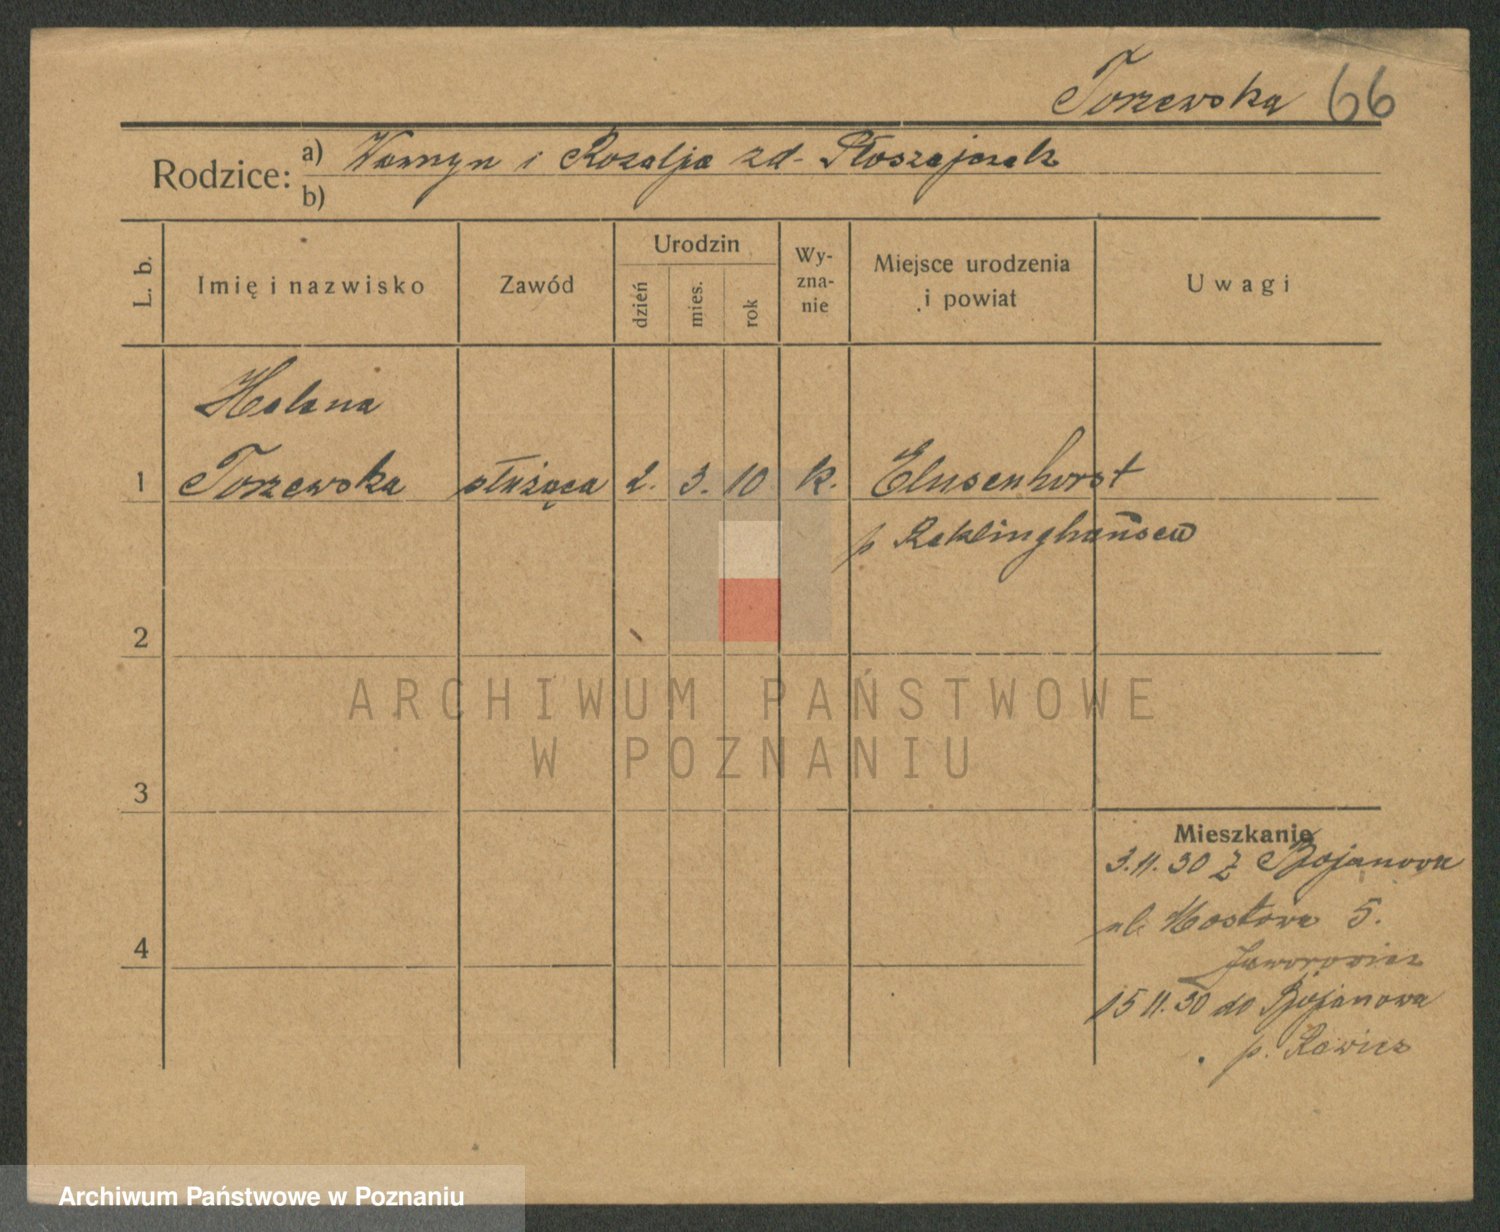 Torzewska 66
Rodzice: a) i Rozalja zd. Płoszajczak
b)
L. b.
Imię i nazwisko
Zawód
Urodzin
dzień
mies.
rok
Wy-
zna-
nie
Miejsce urodzenia
i powiat
Uwagi
Helena
1 Torzewska służąca 2. 3. 10 k. Elusenhorst
p Reklinghausen
2
3
4
Mieszkanie
3.11.30 z Bojanowa
ul. Mostowa 5.
Jaworowicz
15 11.30 do Bojanowa
p. Rawicz
ARCHIWUM PAŃSTWOWE
W POZNANIU
Archiwum Państwowe w Poznaniu